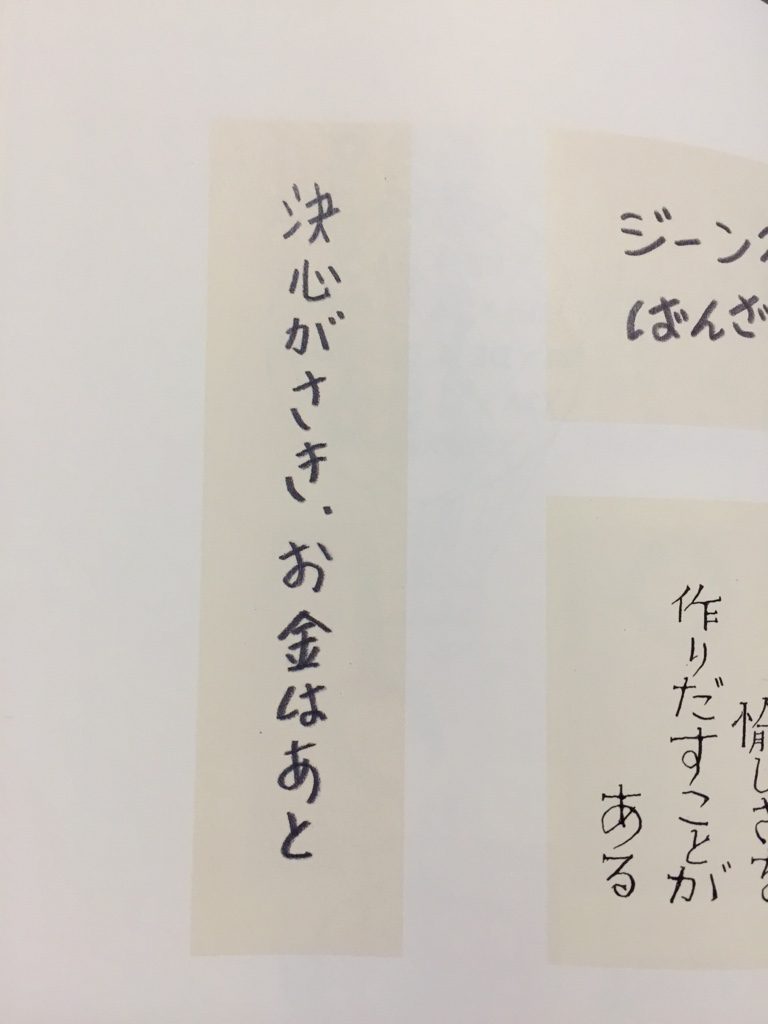 決心がさき、お金はあと
ジーン
ばんざ
愉しさを
作りだすことが
ある